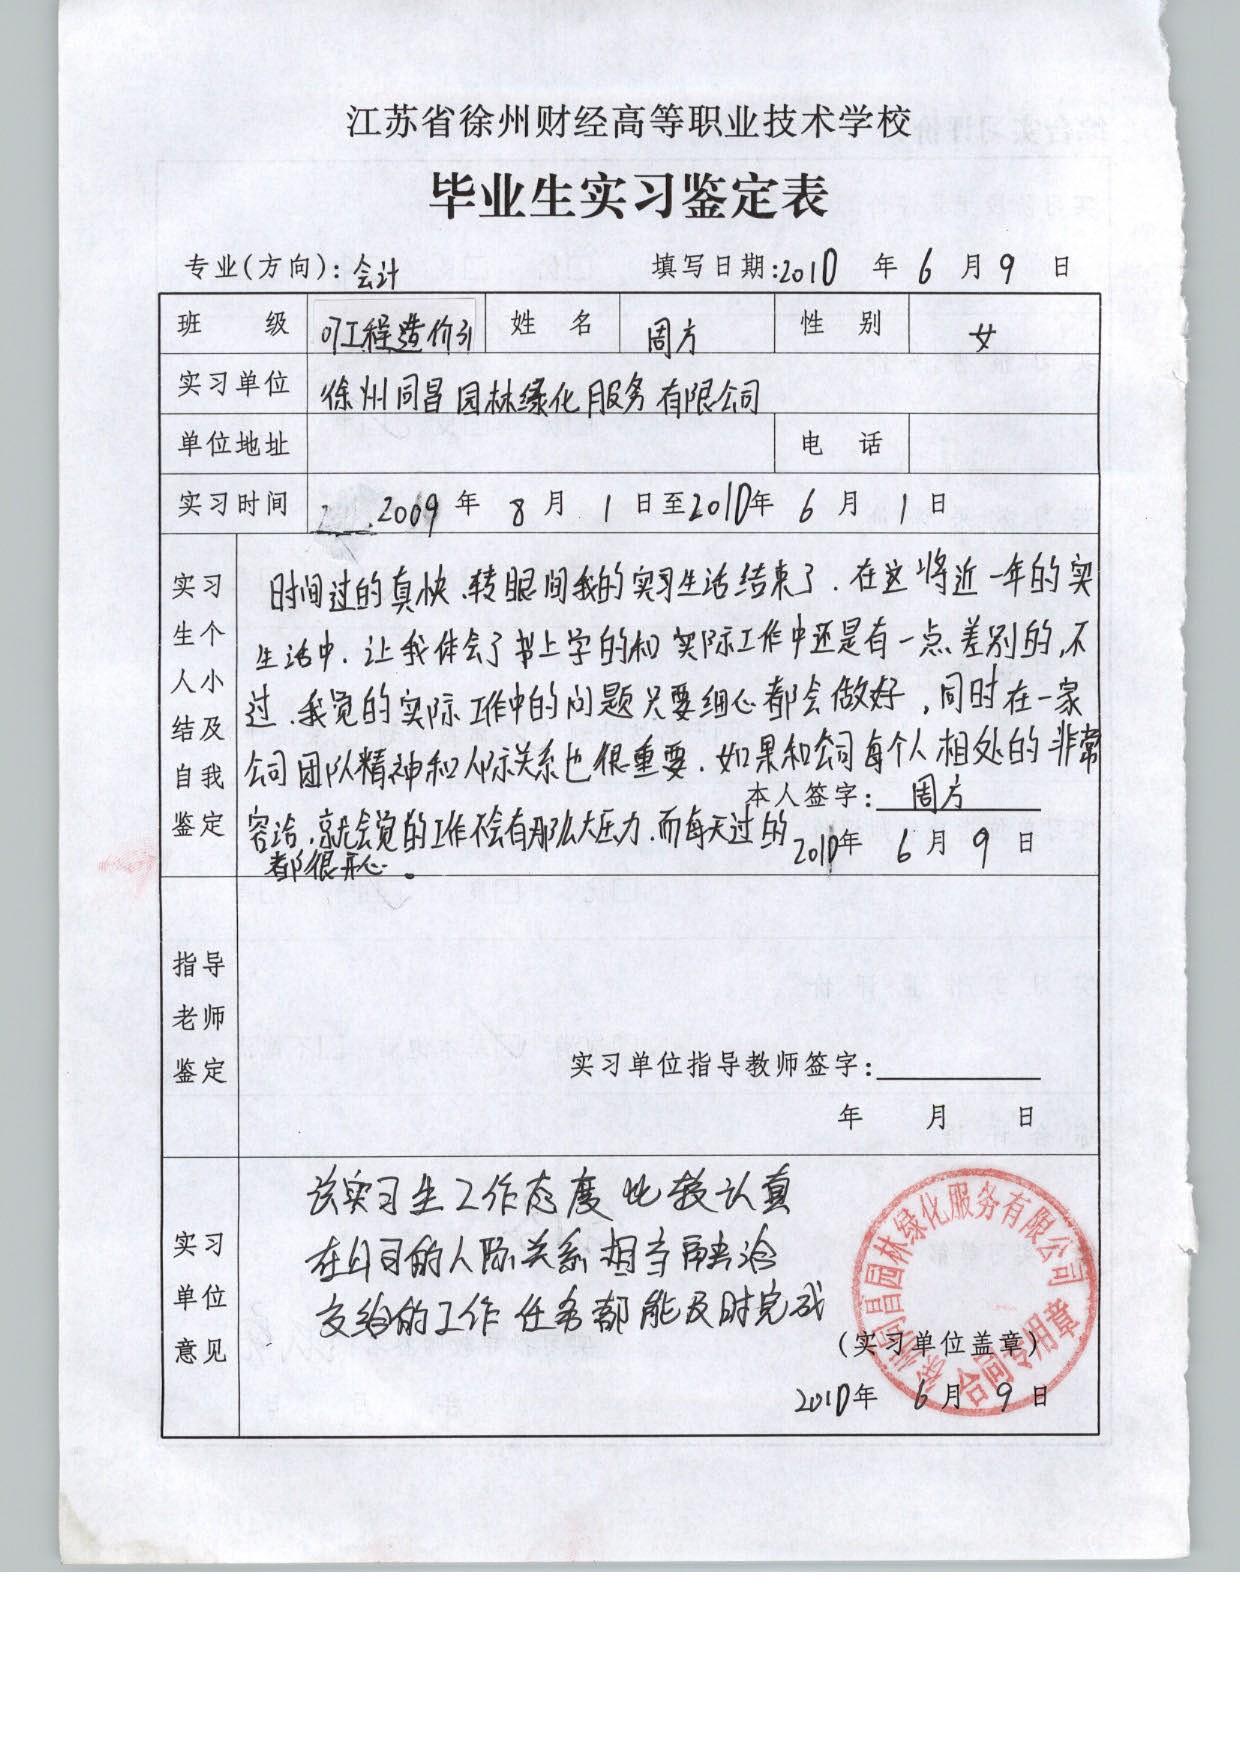 江苏省徐州财经高等职业技术学校
毕业生实习鉴定表
专业(方向): 会计 填写日期:2010 年 6 月 9 日
班 级 工程造价 姓 名 周方 性 别 女
实习单位 徐州同昌园林绿化服务有限公司
单位地址 电 话
实习时间 2009 年 8 月 1 日至2010年 6 月 1 日
实习生个人小结及自我鉴定
时间过的真快、转眼间我的实习生活结束了.在这将近一年的实
生活中.让我体会了书上学的和实际工作中还是有一点差别的,不
过、我觉的实际工作中的问题只要细心都会做好,同时在一家
公司团队精神和人际关系也很重要.如果和公司每个人相处的非常
本人签字: 周方
容洽.就会觉的工作不会有那么大压力.而每天过的
都很开心。
2010年 6 月 9 日
指导老师鉴定
实习单位指导教师签字:
年 月 日
实习单位意见
该实习生工作态度比较认真
在公司的人际关系相当融洽
交给的工作任务都能及时完成
(实习单位盖章)
2010年 6 月 9 日
徐州同昌园林绿化服务有限公司
合同专用章